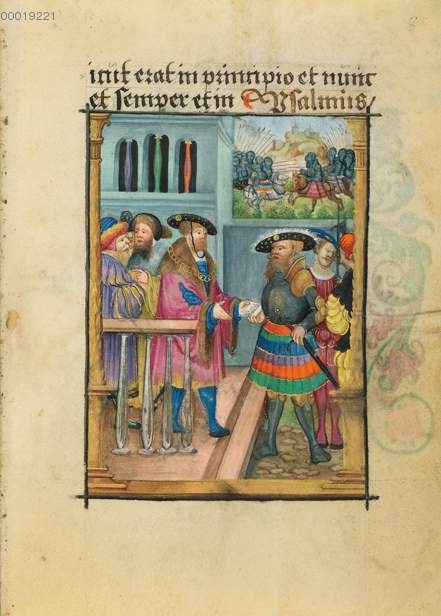 00019221
icut erat in principio et nunc
et semper et in Psalmus